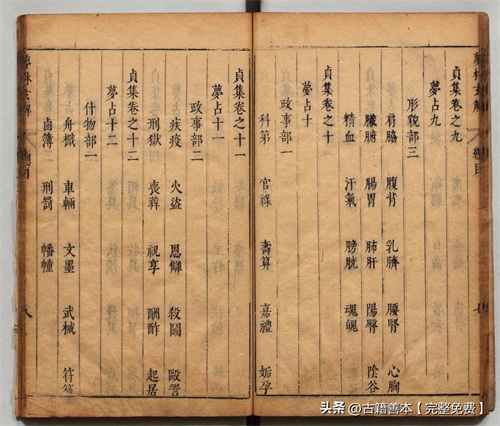 夢林玄解 總目 七
貞集卷之九
夢占九
形貌部三
肩脇 腹背 乳臍 腰腎 心胸
臟腑 腸胃 肺肝 陽腎 陰谷
精血 汗氣 膀胱 魂魄
貞集卷之十
夢占十
政事部一
科第 官祿 壽算 嘉禮 姙孕
貞集卷之十一
夢占十一
政事部二
疾疫 火盜 恩讎 殺鬪 毆詈
刑獄 喪葬 祝享 酬酢 起居
貞集卷之十二
夢占十二
什物部一
舟楫 車輛 文墨 武械 符
鹵簿 刑罰 幡幢
夢林玄解 總目 八
头条 @古籍善本【完整免费】